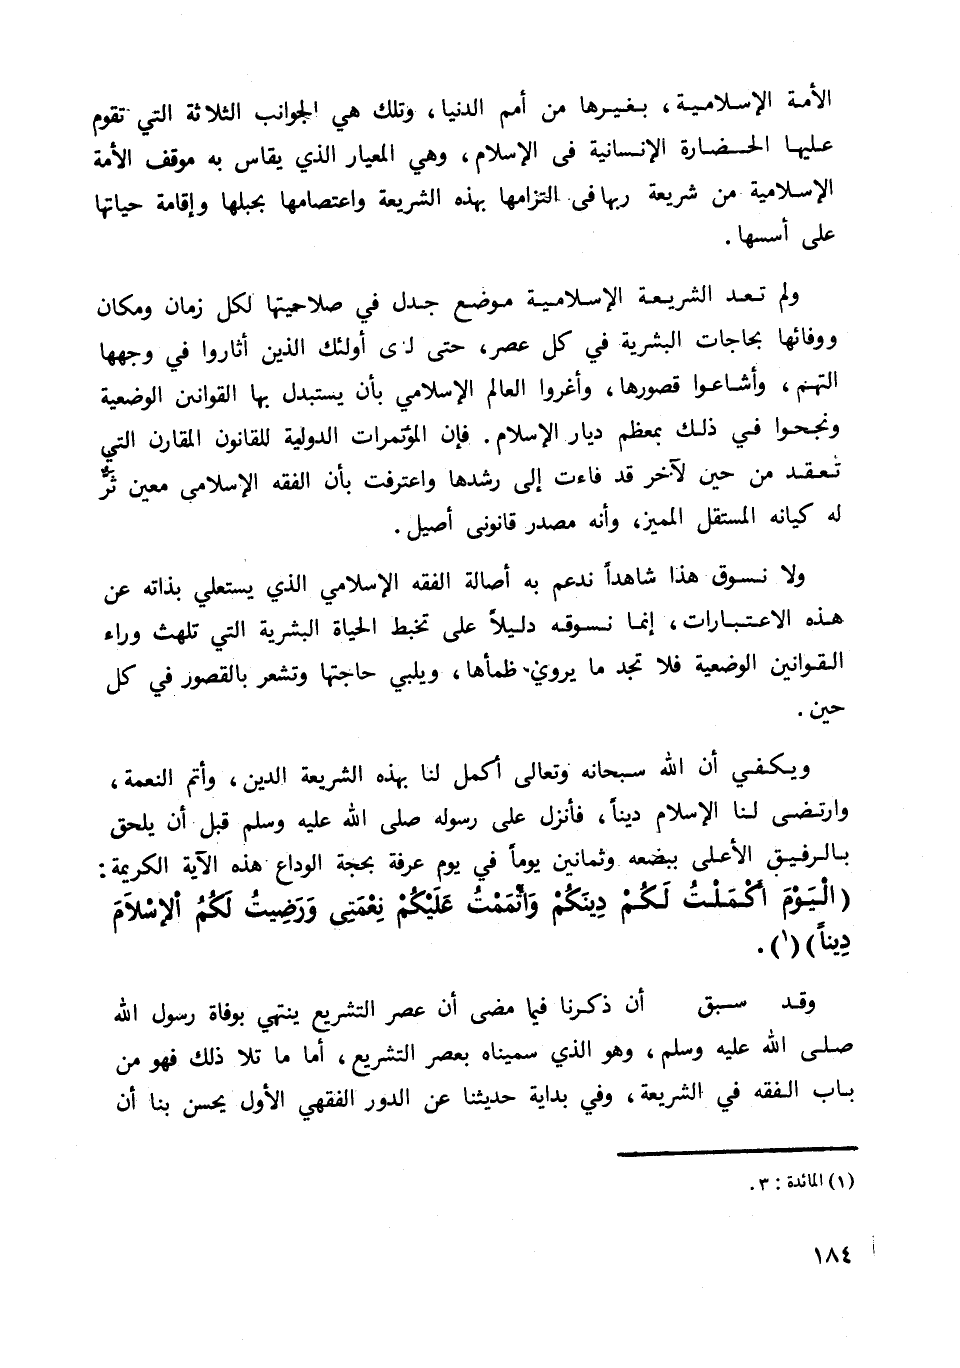 الأمـة الإسـلاميـة، بـغـيـرهـا من أمم الدنيا، وتلك هي الجوانب الثلاثة التي تقوم
عـليهـا الحـضـارة الإنـسانية فى الإسلام، وهي المعيار الذي يقاس به موقف الأمة
الإسـلامية من شريعة ربها فى التزامها بهذه الشريعة واعتصامها بحبلها وإقامة حياتها
على أسسها.
ولم تـعـد الشريـعـة الإسـلامـيـة مـوضـع جـدل في صلاحيتها لكل زمان ومكان
ووفائها بحاجات البشرية في كل عصر، حتى لدى أولئك الذين أثاروا في وجهها
التهـم، وأشـاعـوا قصورها، وأغروا العالم الإسلامي بأن يستبدل بها القوانين الوضعية
ونجحـوا فـي ذلـك بمعظم ديار الإسلام. فإن المؤتمرات الدولية للقانون المقارن التي
تُـعـقـد من حين لآخر قد فاءت إلى رشدها واعترفت بأن الفقه الإسلامى معين ثَرٌّ
له كيانه المستقل المميز، وأنه مصدر قانونى أصيل.
ولا نـسـوق هذا شاهداً ندعم به أصالة الفقه الإسلامي الذي يستعلي بذاته عن
هـذه الاعـتـبـارات، إنما نـسـوقـه دلـيلاً على تخبط الحياة البشرية التي تلهث وراء
الـقـوانين الوضعية فلا تجد ما يروي ظمأها، ويلبي حاجتها وتشعر بالقصور في كل
حين.
ويـكـفـي أن الله سـبحانه وتعالى أكمل لنا بهذه الشريعة الدين، وأتم النعمة،
وارتـضـى لـنـا الإسـلام ديـناً، فأنزل على رسوله صلى الله عليه وسلم قبل أن يلحق
بـالـرفـيـق الأعـلى ببضعه وثمانين يوماً في يوم عرفة بحجة الوداع هذه الآية الكريمة:
(الْـيَـوْمَ أَكْـمَـلْـتُ لَـكُـمْ دِينَكُمْ وَأَتْمَمْتُ عَلَيْكُمْ نِعْمَتِى وَرَضِيتُ لَكُمُ الإِسْلَامَ
دِيناً)(١).
وقـد سـبق أن ذكـرنا فيما مضى أن عصر التشريع ينتهي بوفاة رسول الله
صـلـى الله عليه وسلم، وهو الذي سميناه بعصر التشريع، أما ما تلا ذلك فهو من
بـاب الـفقه في الشريعة، وفي بداية حديثنا عن الدور الفقهي الأول يحسن بنا أن
(١) المائدة : ٣.
١٨٤